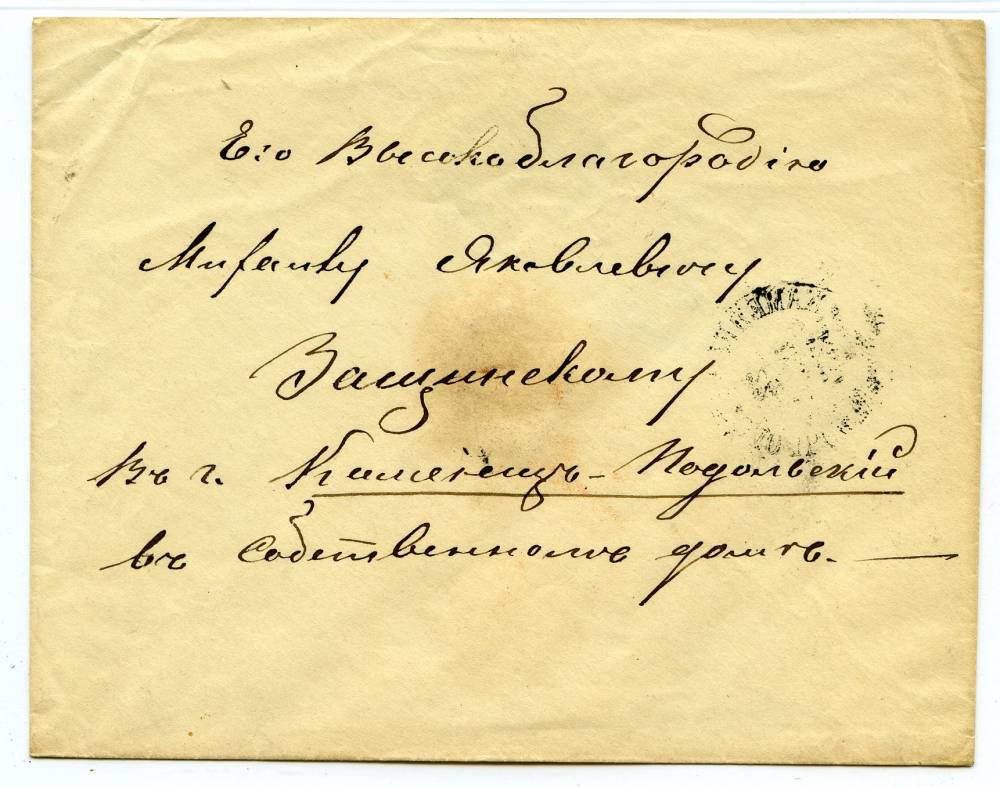 Его Высокоблагородію
Михаилу Яковлевичу
Защинскому
Въ г. Каменецъ-Подольскій
въ собственномъ домѣ. —